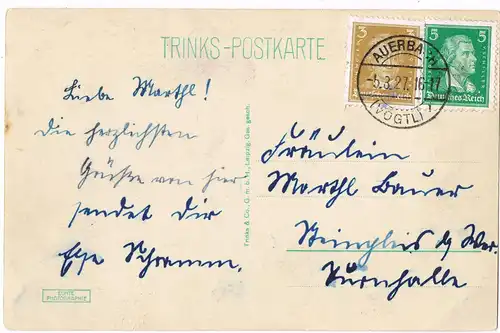 TRINKS-POSTKARTE
3
5
Deutsches Reich
AUERBACH
-5.3.27. 16-17
(VOGTL)
Liebe Marthl!
die herzlichsten
Grüße von hier
sendet dir
Else Schramm.
Trinks & Co., G. m. b. H., Leipzig. Ges. gesch.
Fräulein
Marthl Bauer
Turnhalle
ECHTE
PHOTOGRAPHIE